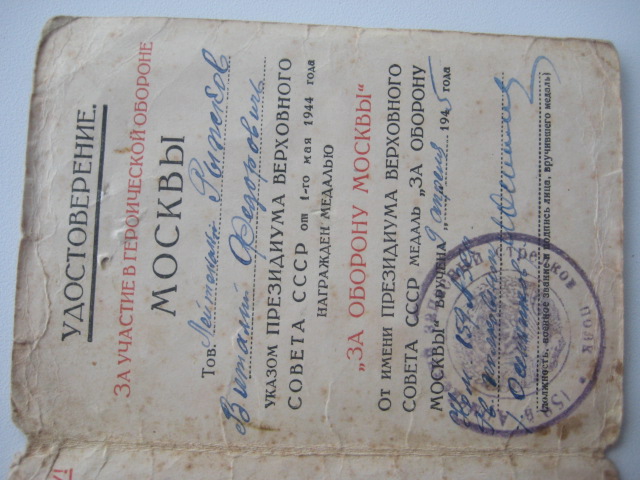 УДОСТОВЕРЕНИЕ.
ЗА УЧАСТИЕ В ГЕРОИЧЕСКОЙ ОБОРОНЕ
МОСКВЫ
Тов. Лейтенант Рыжков
Виталий Федорович
УКАЗОМ ПРЕЗИДИУМА ВЕРХОВНОГО
СОВЕТА СССР от 1-го мая 1944 года
НАГРАЖДЕН МЕДАЛЬЮ
„ЗА ОБОРОНУ МОСКВЫ"
От ИМЕНИ ПРЕЗИДИУМА ВЕРХОВНОГО
СОВЕТА СССР МЕДАЛЬ „ЗА ОБОРОНУ
МОСКВЫ" ВРУЧЕНА „9 апреля 1945 года
159
(должность, военное звание и подпись лица, вручившего медаль)
ПОЛК
У!